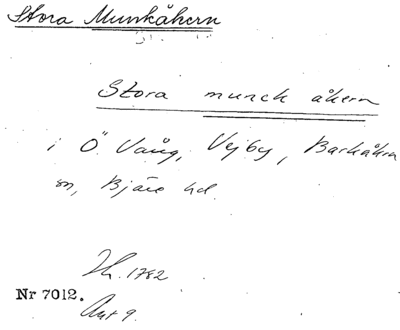 Stora Munkåkern
Stora munck åkern
i Ö. Vång, Vejby, Barkåkra
sn, Bjäre hd.
1782
Nr 7012.
Akt 9.